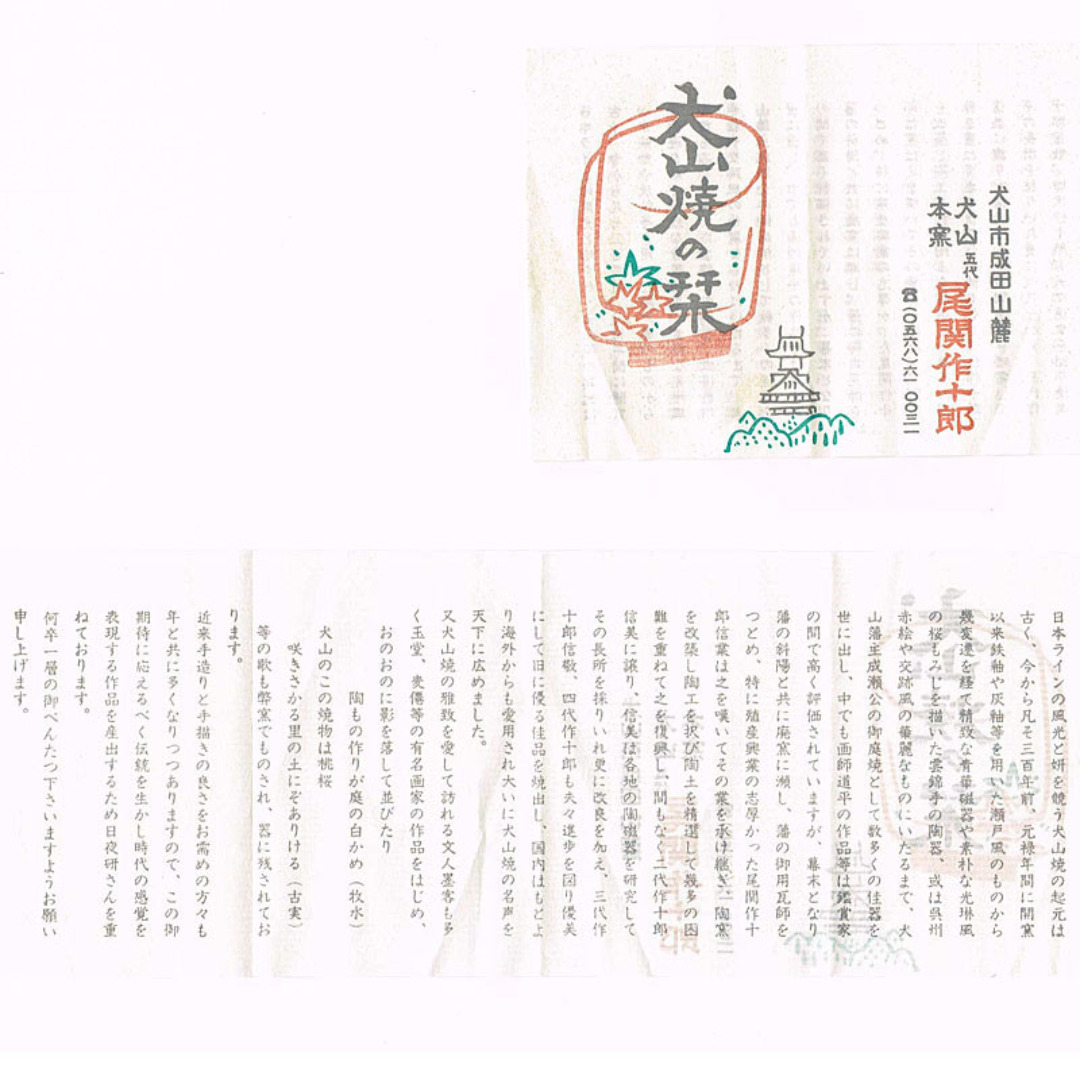 犬山焼の栞
犬山市成田山麓
犬山
本窯
五代
尾関作十郎
☎(〇五六八)六一 〇〇三一
日本ラインの風光と妍を競う犬山焼の起元は
古く、今から凡そ三百年前、元禄年間に開窯
以来鉄釉や灰釉等を用いた瀬戸風のものから
幾変遷を経て精致な青華磁器や素朴な光琳風
の桜もみじを描いた雲錦手の陶器、或は呉州
赤絵や交趾風の華麗なものにいたるまで、犬
山藩主成瀬公の御庭焼として数多くの佳器を
世に出し、中でも画師道平の作品等は鑑賞家
の間で高く評価されていますが、幕末となり
藩の斜陽と共に廃窯に瀕し、藩の御用瓦師を
つとめ、特に殖産興業の志厚かった尾関作十
郎信業は之を嘆いてその業を承け継ぎ、陶窯
を改築し陶工を択び陶土を精選して幾多の困
難を重ねて之を復興し、間もなく二代作十郎
信美に譲り、信美は各地の陶磁器を研究して
その長所を採りいれ更に改良を加え、三代作
十郎信敬、四代作十郎も夫々進歩を図り優美
にして旧に優る佳品を焼出し、国内はもとよ
り海外からも愛用され大いに犬山焼の名声を
天下に広めました。
又犬山焼の雅致を愛して訪れる文人墨客も多
く玉堂、麦僊等の有名画家の作品をはじめ、
おのおのに影を落して並びたり
陶もの作りが庭の白かめ(牧水)
犬山のこの焼物は桃桜
咲きさかる里の土にぞありける(古実)
等の歌も弊窯でものされ、器に残されてお
ります。
近来手造りと手描きの良さをお需めの方々も
年と共に多くなりつつありますので、この御
期待に応えるべく伝統を生かし時代の感覚を
表現する作品を産出するため日夜研さんを重
ねております。
何卒一層の御べんたつ下さいますようお願い
申し上げます。